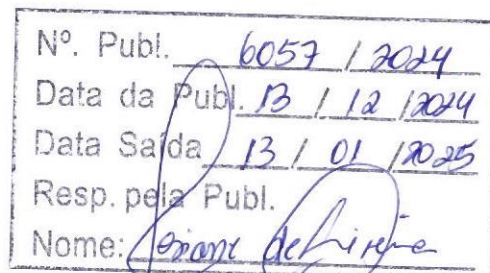 Nº. Publ. 6057 / 2024
Data da Publ. 13 / 12 / 2024
Data Saída 13 / 01 / 2025
Resp. pela Publ.
Nome: